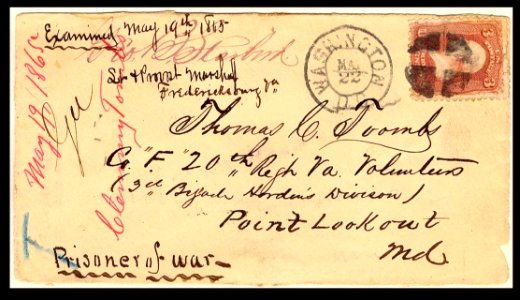 Examined May 19th 1865
Lt & Provost Marshal
Fredericksburg Va
WASHINGTON
MAY
22
D.C.
3
Thomas C. Toombs
Co "F" 20th Regt Va. Volunteers
(3rd Brigade Hardin's Division)
Point Lookout
Md
Prisoner of war
May 19 1865